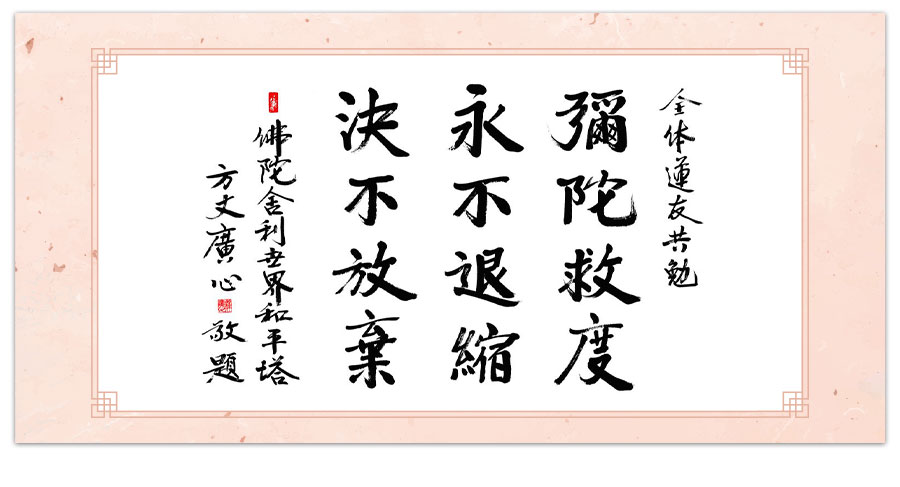 全体蓮友共勉
彌陀救度
永不退縮
決不放棄
佛陀舍利世界和平塔
方文廣心敬題